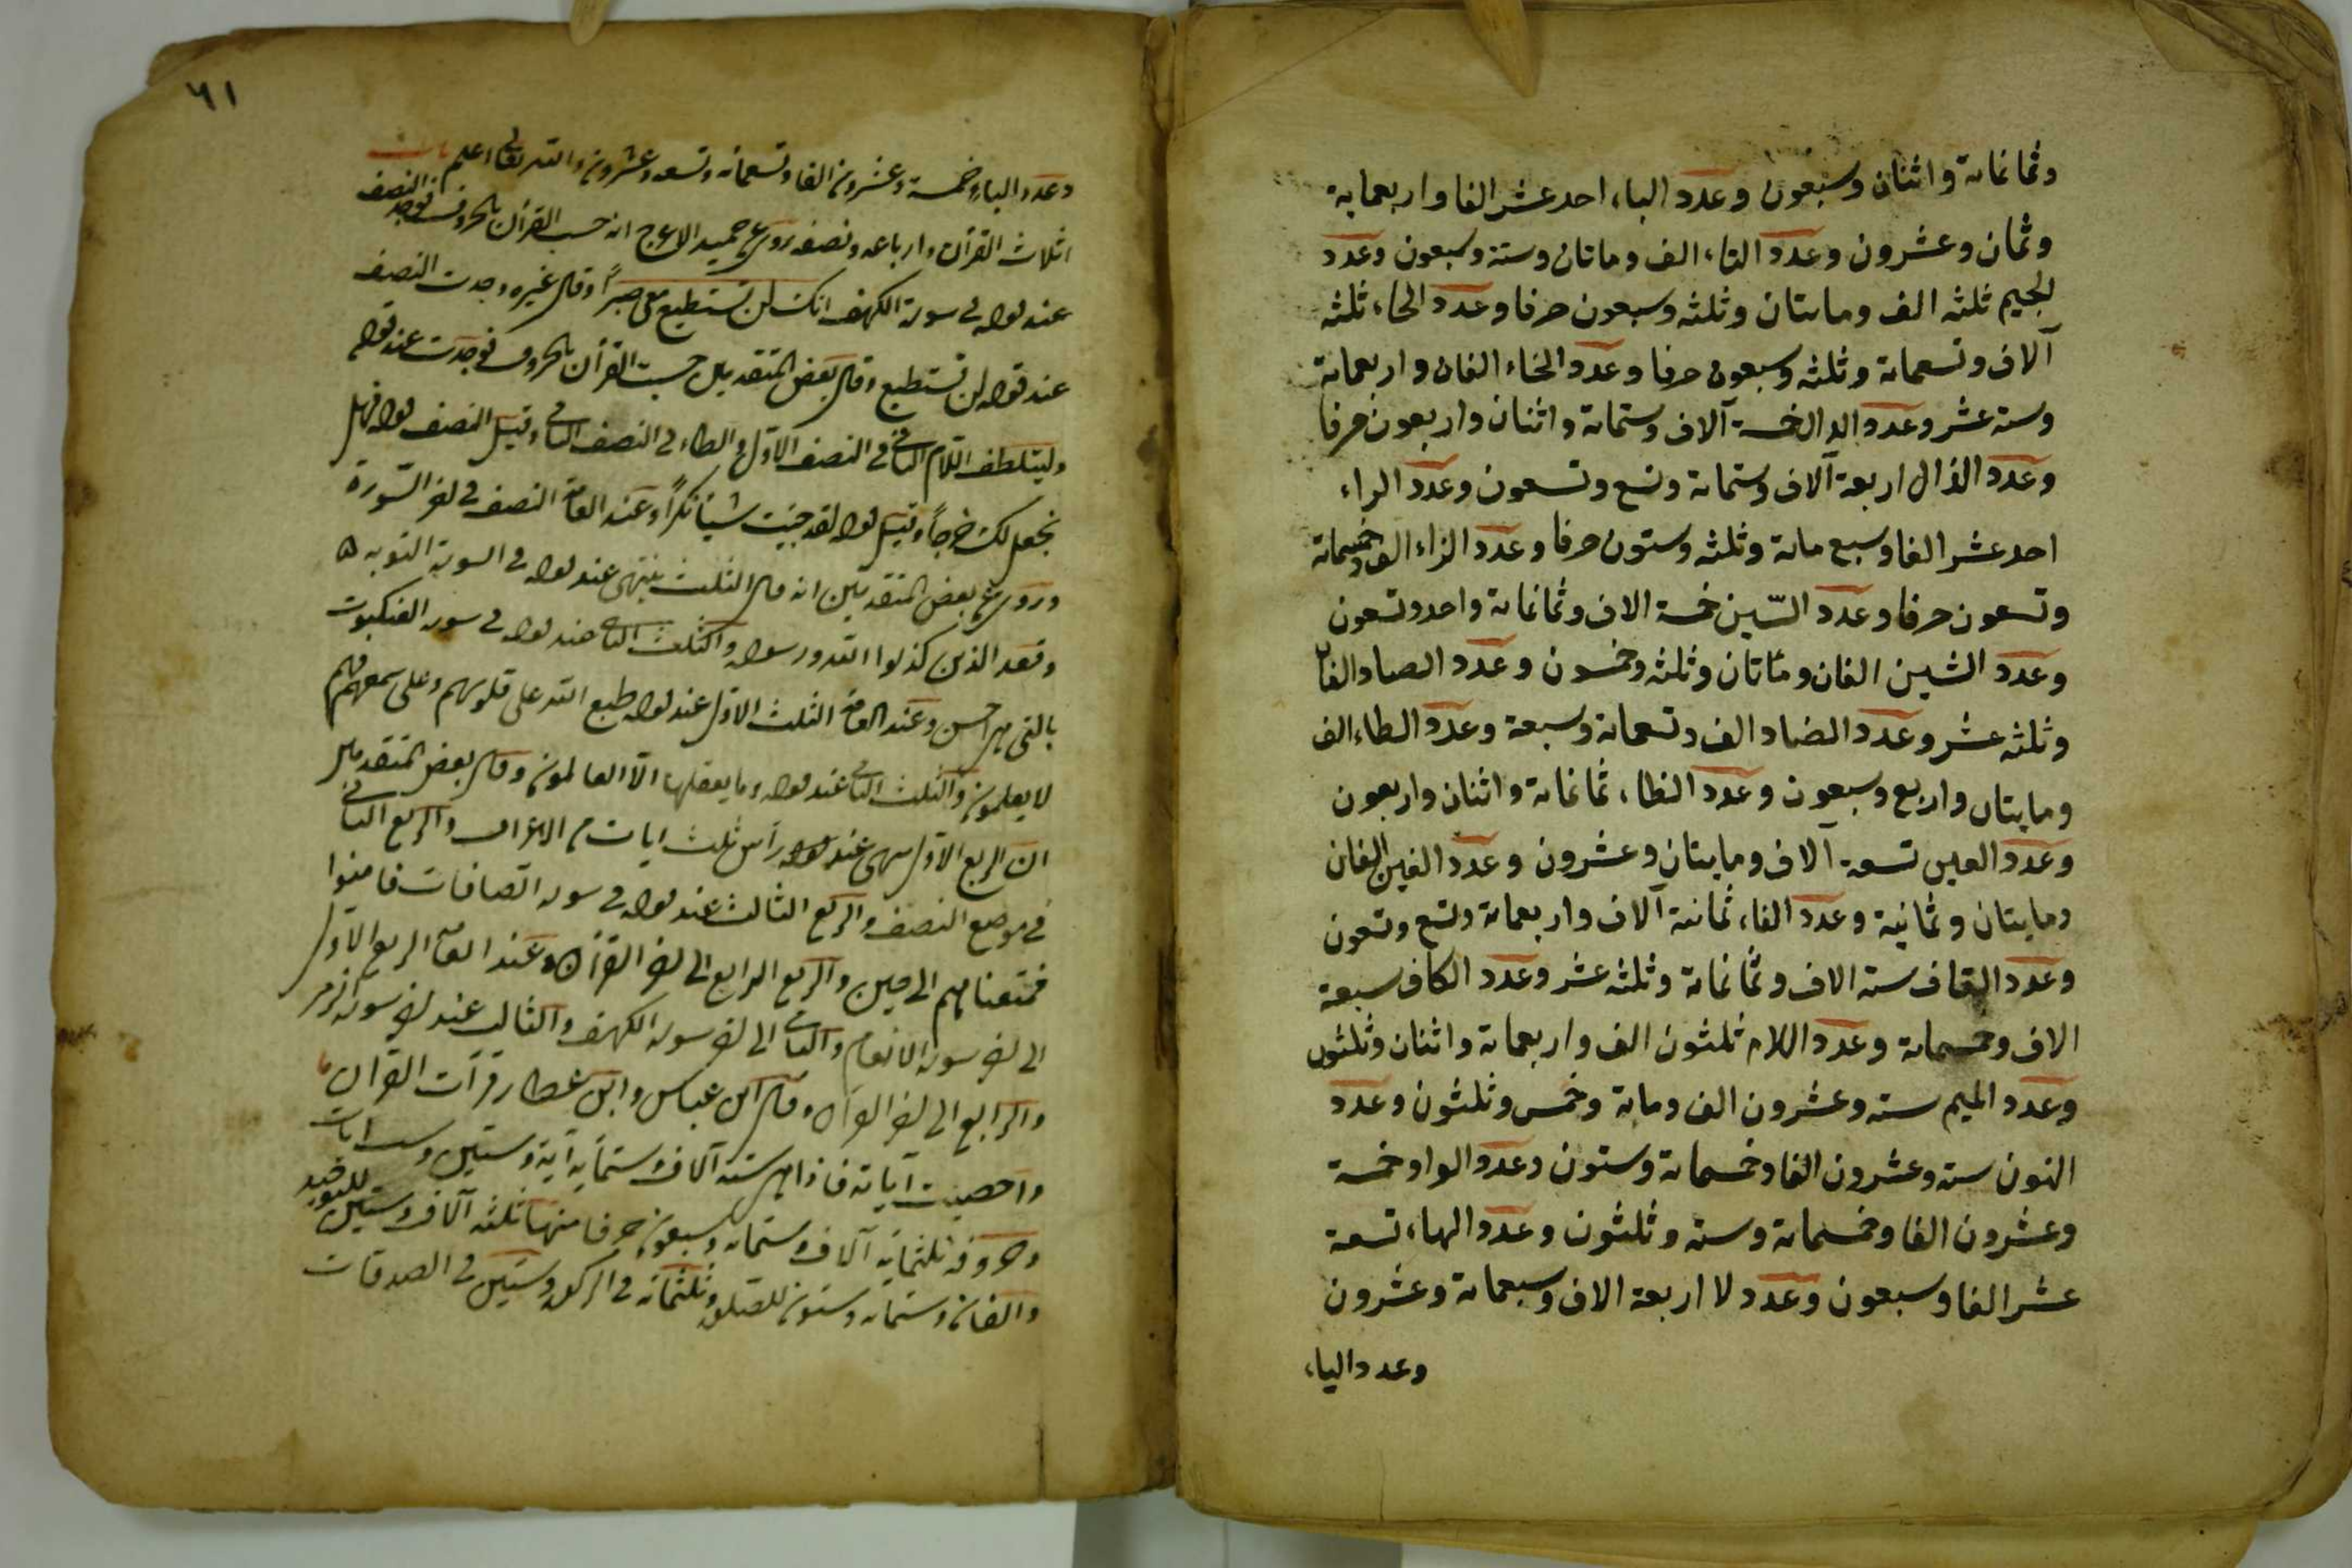 وثمانمائة واثنان وسبعون وعدد الباء احد عشر الفا واربعماية
وثمان وعشرون وعدد التاء الف وماتان وستة وسبعون وعدد
الجيم ثلثه الف ومايتان وثلثه وسبعون حرفا وعدد الحاء ثلثه
آلاف وتسعمائة وثلثه وسبعون حرفا وعدد الخاء الفان واربعمائة
وستة عشر وعدد الدال خمسة آلاف وستمائة واثنان واربعون حرفا
وعدد الذال اربعة آلاف وستمائة وتسع وتسعون وعدد الراء
احد عشر الفا وسبع مائة وثلثه وستون حرفا وعدد الزاء الف وخمسمائة
وتسعون حرفا وعدد السّين خمسة الاف وثمانمائة واحد وتسعون
وعدد الشين الفان ومأتان وثلثه وخمسون وعدد الصاد الفان
وثلثه عشر وعدد الضاد الف وتسعمائة وسبعة وعدد الطاء الف
ومايتان واربع وسبعون وعدد الظاء ثمانمائة واثنان واربعون
وعدد العين تسعة آلاف ومايتان وعشرون وعدد الغين الفان
ومايتان وثمانية وعدد الفاء ثمانية آلاف واربعمائة وتسع وتسعون
وعدد القاف ستة الاف وثمانمائة وثلثه عشر وعدد الكاف سبعة
الاف وخمسمائة وعدد اللام ثلثون الف واربعمائة واثنان وثلثون
وعدد الميم ستة وعشرون الف ومائة وخمس وثلثون وعدد
النون ستة وعشرون الفا وخمسمائة وستون وعدد الواو خمسة
وعشرون الفا وخمسمائة وستة وثلثون وعدد الهاء تسعة
عشر الفا وسبعون وعدد لا اربعة الاف وسبعمائة وعشرون
وعدد الياء
٦١
وعدد الياء خمسة وعشرون الفا وتسعمائه وتسعه وعشرون والله تعالى اعلم باب
اثلاث القرآن وارباعه ونصفه روى عن حميد الاعرج انه حسب القرآن بالحروف فوجد النصف
عند قوله في سورة الكهف انك لن تستطيع معى صبراً وقال غيره وجدت النصف
عند قوله لن تستطيع وقال بعض المتقدمين حسبت القرآن بالحروف فوجدت عند قوله
وليتلطف اللام الثاني في النصف الاول والطاء في النصف الثاني وقيل النصف قوله فهل
نجعل لك خرجاً وقيل قوله لقد جئت شيئا نكراً وعند العامة النصف في اخر السّورة
وروى عن بعض المتقدمين انه قال الثلث ينتهى عند قوله في السورة التوبه ٥
وقعد الذين كذبوا الله ورسوله والثلث الثاني عند قوله في سورة العنكبوت
بالتى هى احسن وعند العامة الثلث الاول عند قوله طبع الله على قلوبهم وعلى سمعهم فهم
لا يعلمون والثلث الثاني عند قوله وما يعقلها الّا العالمون وقال بعض المتقدمين
ان الربع الاول ينتهى عند قوله رأس ثلث ايات من الاعراف والربع الثاني
في موضع النصف والربع الثالث عند قوله في سورة الصافات فامنوا
فمتعناهم الى حين والربع الرابع الى اخر القرآن وعند العامة الربع الاول
الى اخر سورة الانعام والثاني الى اخر سورة الكهف والثالث عند اخر سورة زمر
والرابع الى اخر القرآن وقال ابن عباس وابن عطار قرأت القرآن
واحصيت آياته فاذا هى ستة آلاف وستمايه آية وستين وست ايات
وحروفه ثلثمايه آلاف وستمائه وسبعون حرفا منها ثلثه آلاف وستين للتوحيد
والفان وستمائه وستون للصلوة وثلثمائه في الزكوة وستين في الصدقات